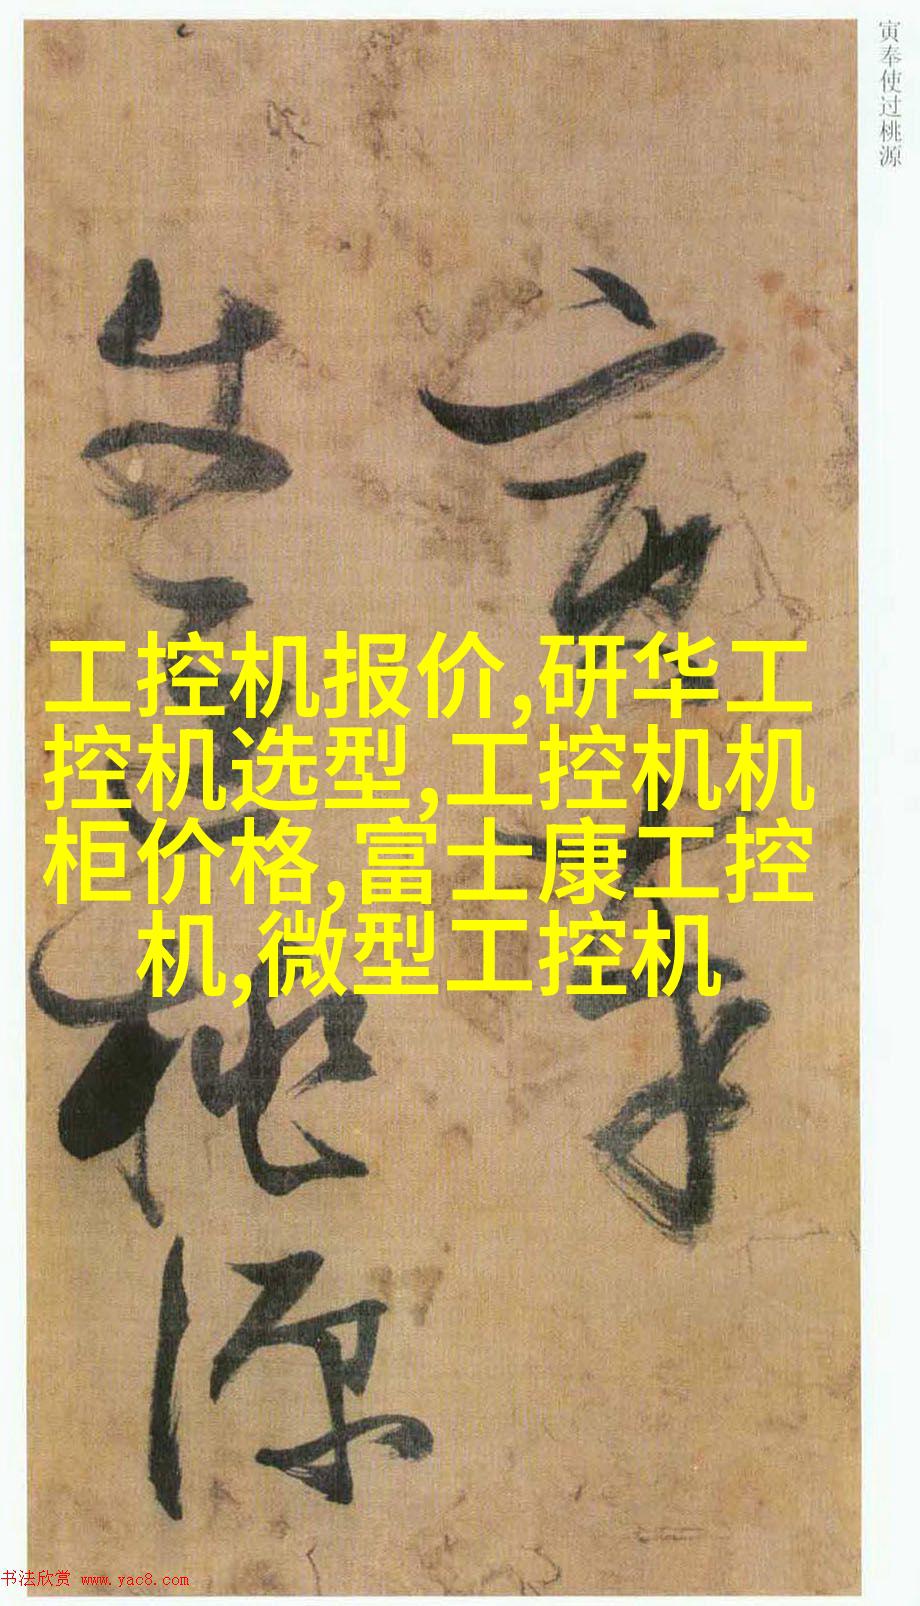 寅奉使过桃源
寅奉
使过桃源
工控机报价,研华工
控机选型,工控机机
柜价格,富士康工控
机,微型工控机
书法欣赏 www.yac8.com